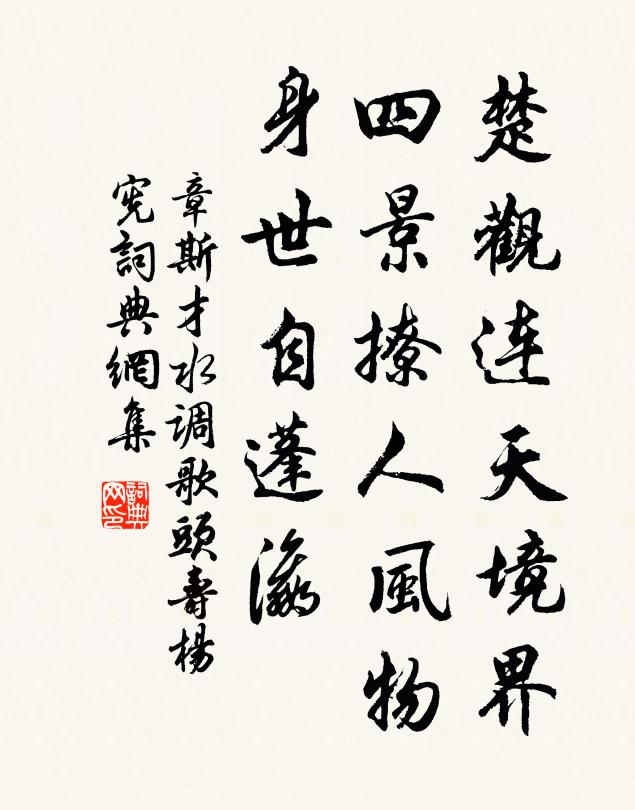 楚觀连天境界
四景撩人風物
身世自蓬瀛
章斯才水调歌頭壽楊
宪詞典網集
詞典
网印